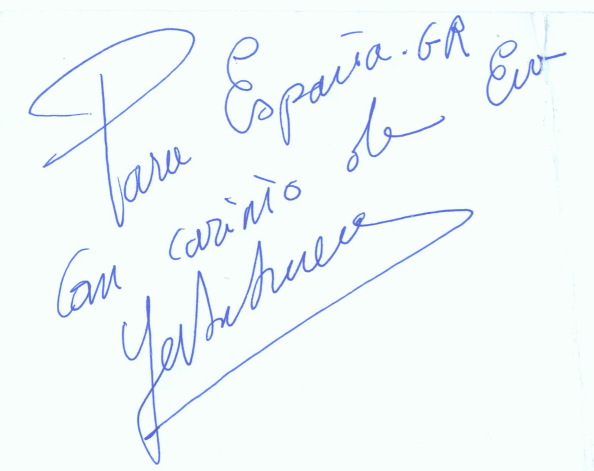 Para España.GR
Con cariño de Eva